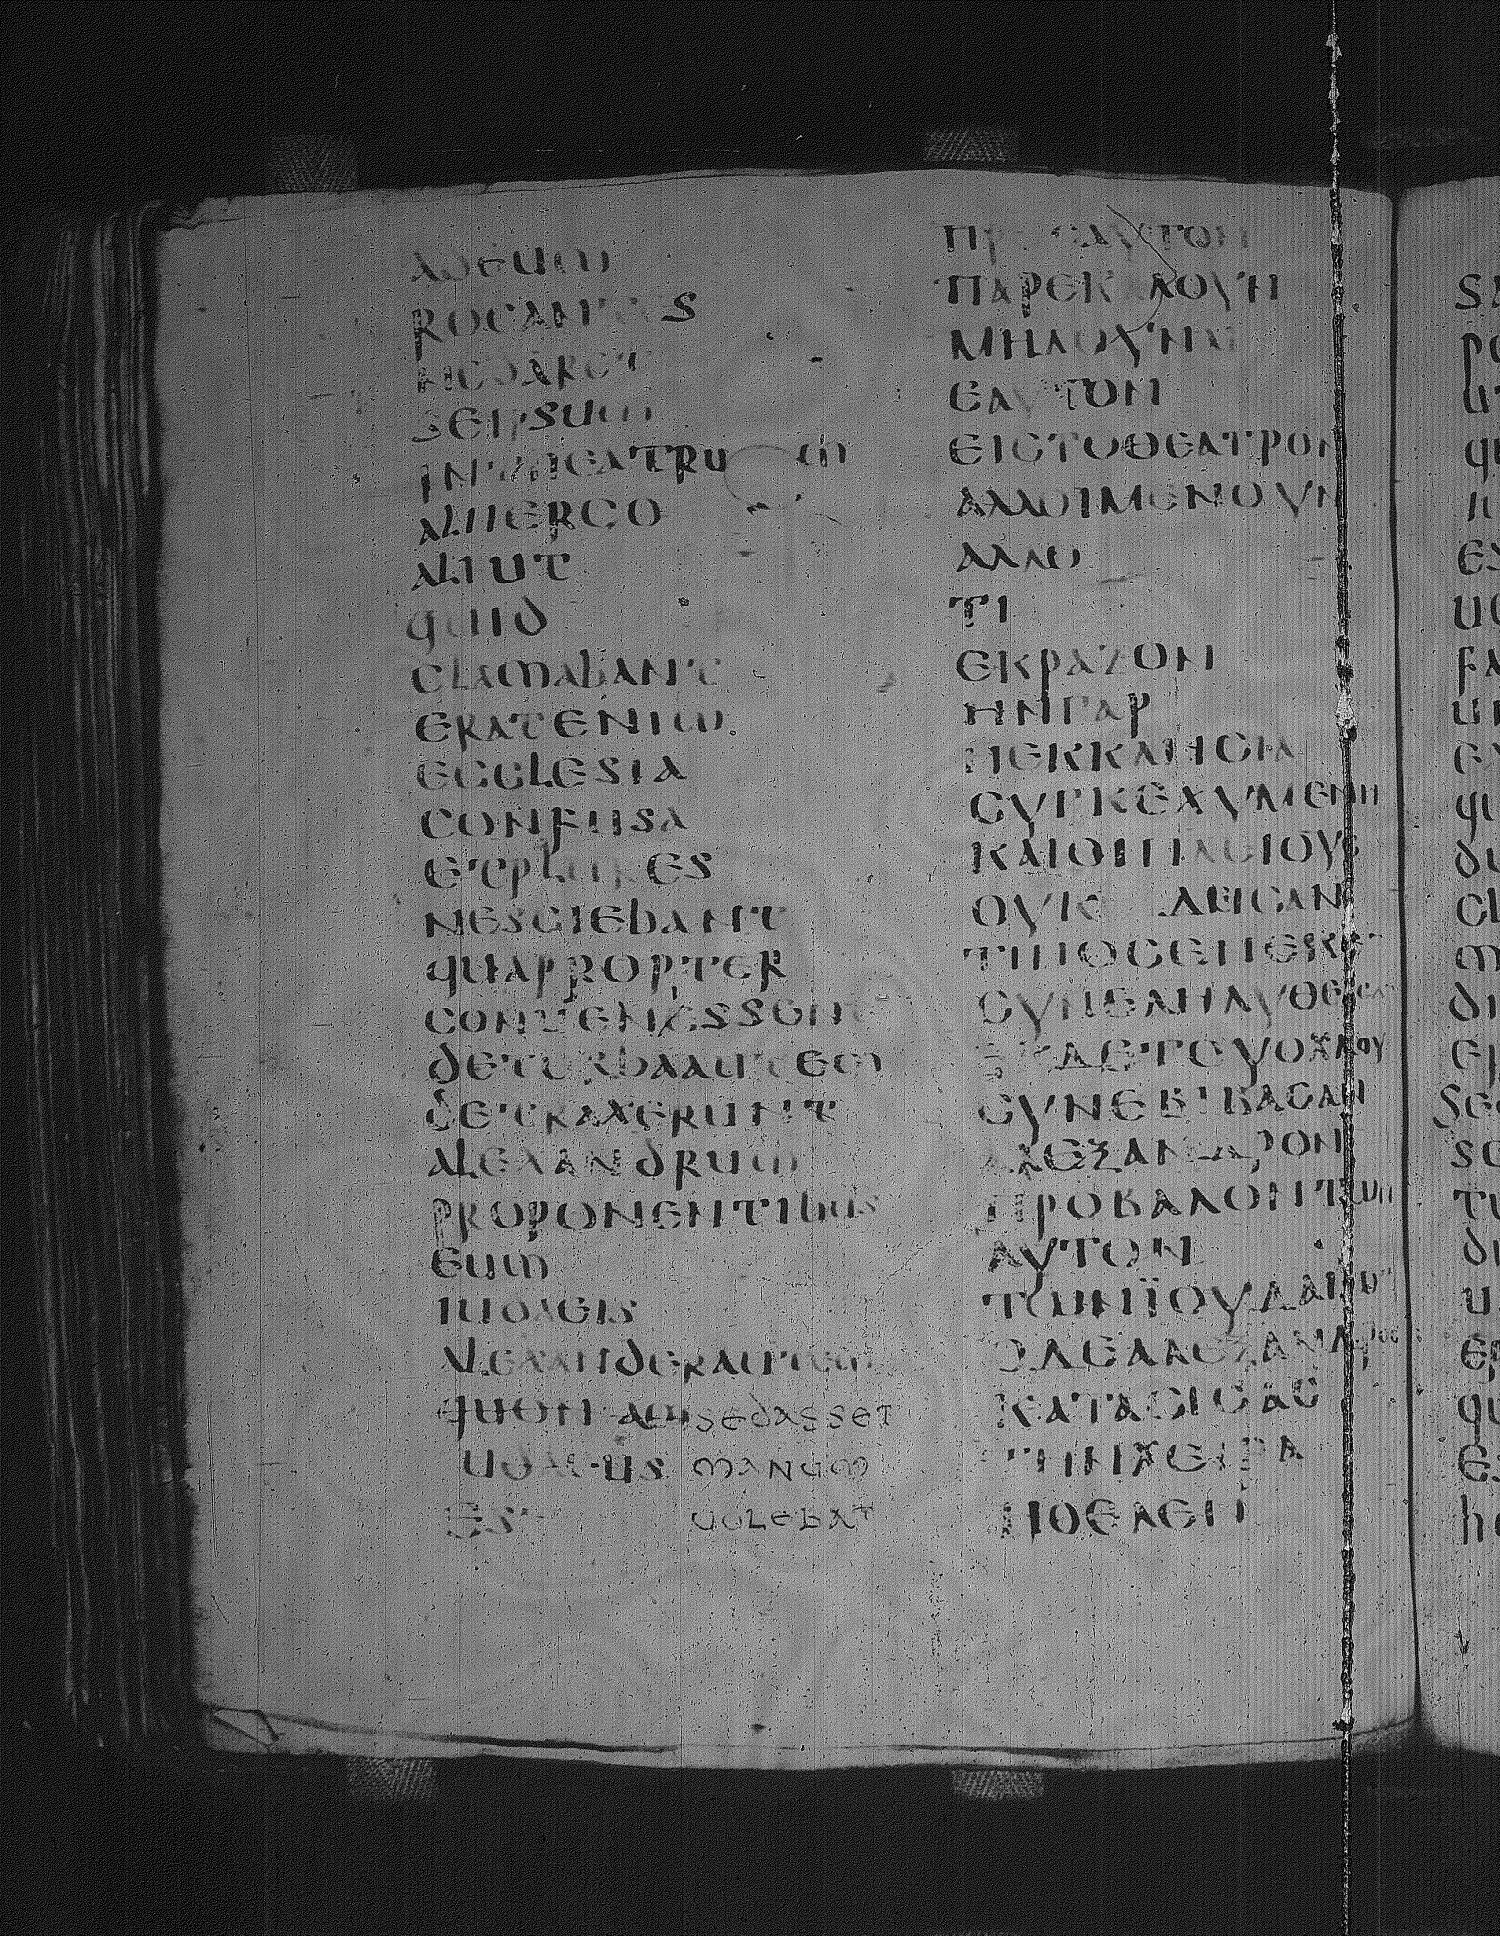 adeum
rogantes
nedaret
seipsum
intheatrum
aliiergo
aliut
quid
clamabant
eratenim
ecclesia
confusa
etplures
nesciebant
quapropter
conuenissent
deturbaautem
detraxerunt
alexandrum
proponentibus
eum
iudaeis
alexanderautem
quum sedasset
manum
uolebat
ΠΡ ΑΥΤΟΝ
ΠΑΡΕΚΑΛΟΥΝ
ΜΗΔΟΥΝΑΙ
ΕΑΥΤΟΝ
ΕΙСΤΟΘΕΑΤΡΟΝ
ΑΛΛΟΙΜΕΝΟΥΝ
ΑΛΛΟ
ΤΙ
ΕΚΡΑΖΟΝ
ΗΝΓΑΡ
ΗΕΚΚΛΗСΙΑ
СΥΓΚΕΧΥΜΕΝΗ
ΚΑΙΟΙΠΛΕΙΟΥС
ΟΥΚ ΔΕΙСΑΝ
ΤΙΝΟСΕΝΕΚΕΝ
СΥΝΕΛΗΛΥΘΕΙСΑΝ
ΕΚΔΕΤΟΥΟΧΛΟΥ
СΥΝΕΒΙΒΑСΑΝ
ΑΛΕΞΑΝΔΡΟΝ
ΠΡΟΒΑΛΟΝΤΩΝ
ΑΥΤΟΝ
ΤΩΝΪΟΥΔΑΙΩΝ
ΟΔΕΑΛΕΞΑΝΔΡΟС
ΚΑΤΑСΙСΑС
ΤΗΝΧΕΙΡΑ
ΗΘΕΛΕΝ